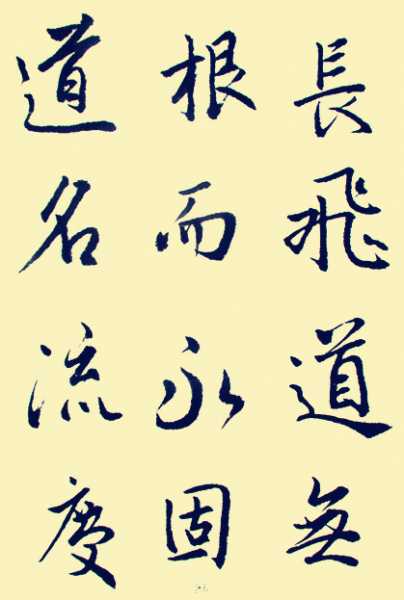 長飛道無
根而永固
道名流慶